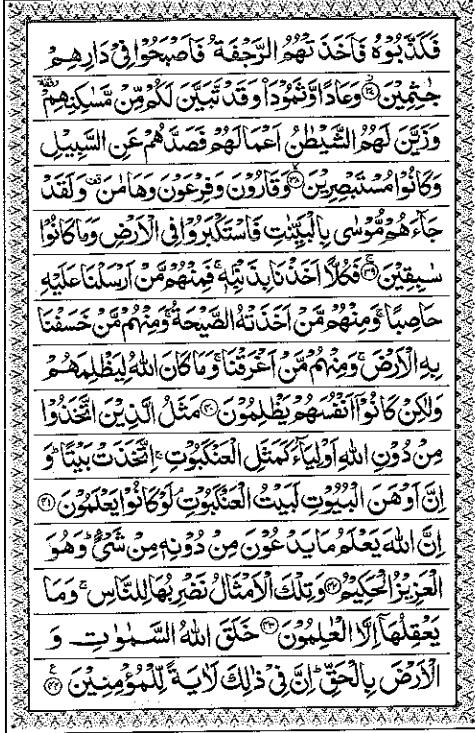 فَكَذَّبُوْهُ فَاَخَذَتْهُمُ الرَّجْفَةُ فَاَصْبَحُوْا فِیْ دَارِهِمْ
جٰثِمِیْنَ ﴿۳۷﴾ وَعَادًا وَّثَمُوْدَاۡ وَقَدْ تَّبَیَّنَ لَكُمْ مِّنْ مَّسٰكِنِهِمْ
وَزَیَّنَ لَهُمُ الشَّیْطٰنُ اَعْمَالَهُمْ فَصَدَّهُمْ عَنِ السَّبِیْلِ
وَكَانُوْا مُسْتَبْصِرِیْنَ ﴿۳۸﴾ وَقَارُوْنَ وَفِرْعَوْنَ وَهَامٰنَ وَلَقَدْ
جَآءَهُمْ مُّوْسٰی بِالْبَیِّنٰتِ فَاسْتَكْبَرُوْا فِی الْاَرْضِ وَمَا كَانُوْا
سٰبِقِیْنَ ﴿۳۹﴾ فَكُلًّا اَخَذْنَا بِذَنْۢبِهٖ ۚ فَمِنْهُمْ مَّنْ اَرْسَلْنَا عَلَیْهِ
حَاصِبًا ۚ وَمِنْهُمْ مَّنْ اَخَذَتْهُ الصَّیْحَةُ ۚ وَمِنْهُمْ مَّنْ خَسَفْنَا
بِهِ الْاَرْضَ ۚ وَمِنْهُمْ مَّنْ اَغْرَقْنَا ۚ وَمَا كَانَ اللّٰهُ لِیَظْلِمَهُمْ
وَلٰكِنْ كَانُوْۤا اَنْفُسَهُمْ یَظْلِمُوْنَ ﴿۴۰﴾ مَثَلُ الَّذِیْنَ اتَّخَذُوْا
مِنْ دُوْنِ اللّٰهِ اَوْلِیَآءَ كَمَثَلِ الْعَنْكَبُوْتِ ۚ اِتَّخَذَتْ بَیْتًا ؕ وَ
اِنَّ اَوْهَنَ الْبُیُوْتِ لَبَیْتُ الْعَنْكَبُوْتِ ۘ لَوْ كَانُوْا یَعْلَمُوْنَ ﴿۴۱﴾
اِنَّ اللّٰهَ یَعْلَمُ مَا یَدْعُوْنَ مِنْ دُوْنِهٖ مِنْ شَیْءٍ ؕ وَهُوَ
الْعَزِیْزُ الْحَكِیْمُ ﴿۴۲﴾ وَتِلْكَ الْاَمْثَالُ نَضْرِبُهَا لِلنَّاسِ ۚ وَمَا
یَعْقِلُهَاۤ اِلَّا الْعٰلِمُوْنَ ﴿۴۳﴾ خَلَقَ اللّٰهُ السَّمٰوٰتِ وَ
الْاَرْضَ بِالْحَقِّ ؕ اِنَّ فِیْ ذٰلِكَ لَاٰیَةً لِّلْمُؤْمِنِیْنَ ﴿۴۴﴾